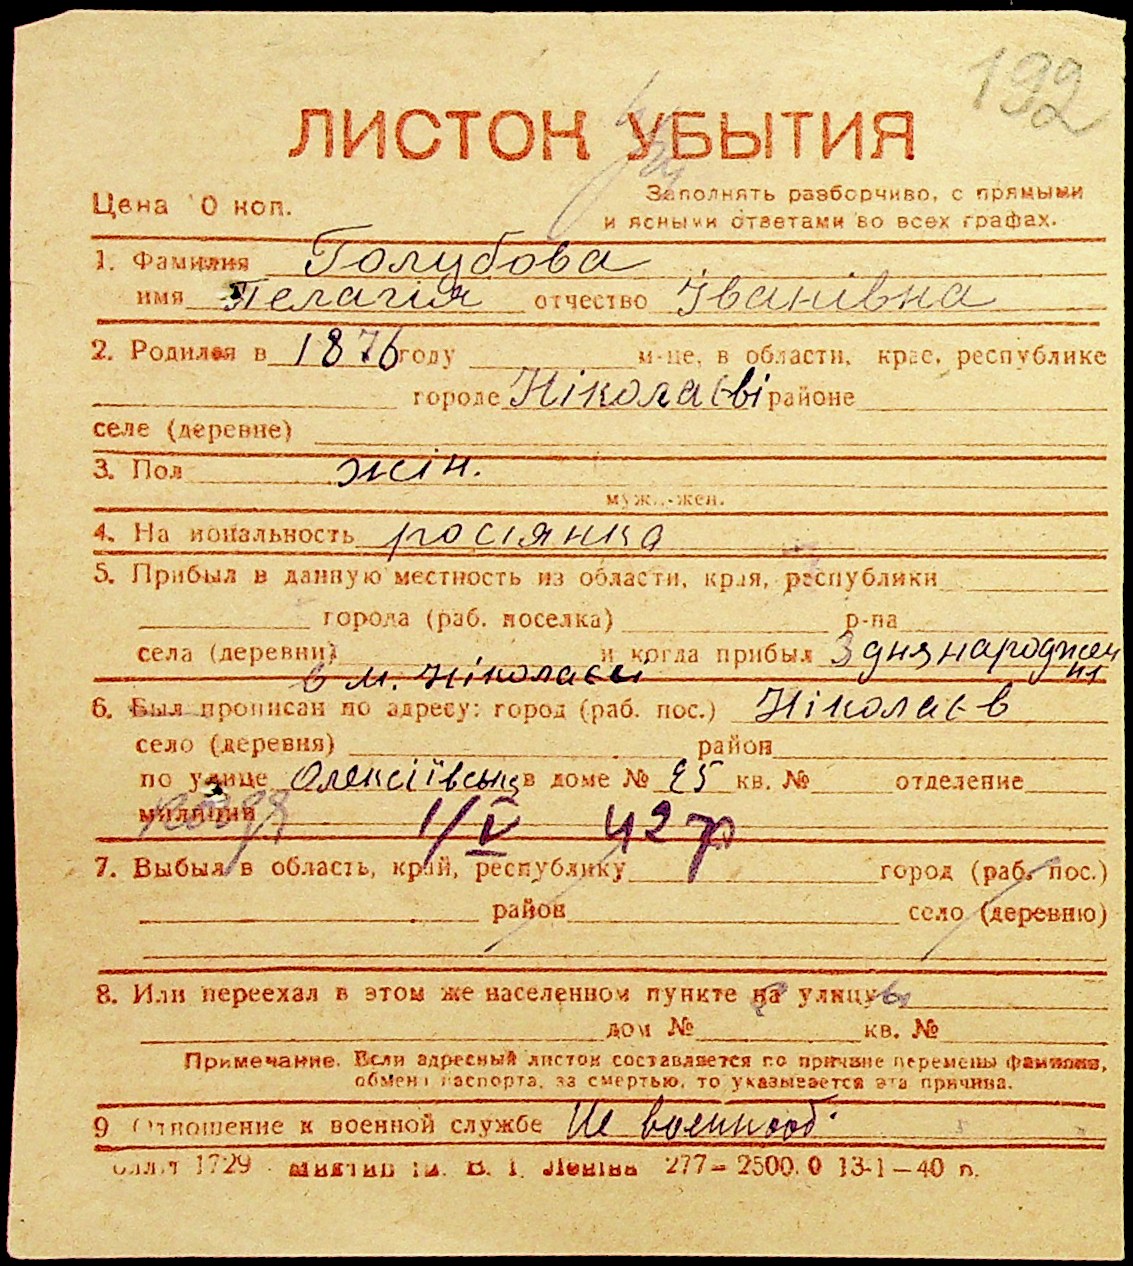 192
ЛИСТОК УБЫТИЯ
Цена 10 коп.
Заполнять разборчиво, с прямыми
и ясными ответами во всех графах.
1. Фамилия Голубова
имя Пелагія отчество Іванівна
2. Родился в 1876 году м-це, в области, крае, республике
городе Ніколаєві районе
селе (деревне)
3. Пол жін.
муж.-жен.
4. Национальность росіянка
5. Прибыл в данную местность из области, края, республики
города (раб. поселка) р-на
села (деревни) и когда прибыл З дня народжен
ня
в м. Ніколаєві
6. Был прописан по адресу: город (раб. пос.) Ніколаєв
село (деревня) район
по улице Олексіївськ в доме № 25 кв. № отделение
милиции 1/V 42 р
7. Выбыл в область, край, республику город (раб. пос.)
район село (деревню)
8. Или переехал в этом же населенном пункте на улицу
дом № кв. №
Примечание. Если адресный листок составляется по причине перемены фамилии,
обмена паспорта, за смертью, то указывается эта причина.
9 Отношение к военной службе Не военнооб.
1729 ім. В. І. Леніна 277–2500.0 13-1–40 п.